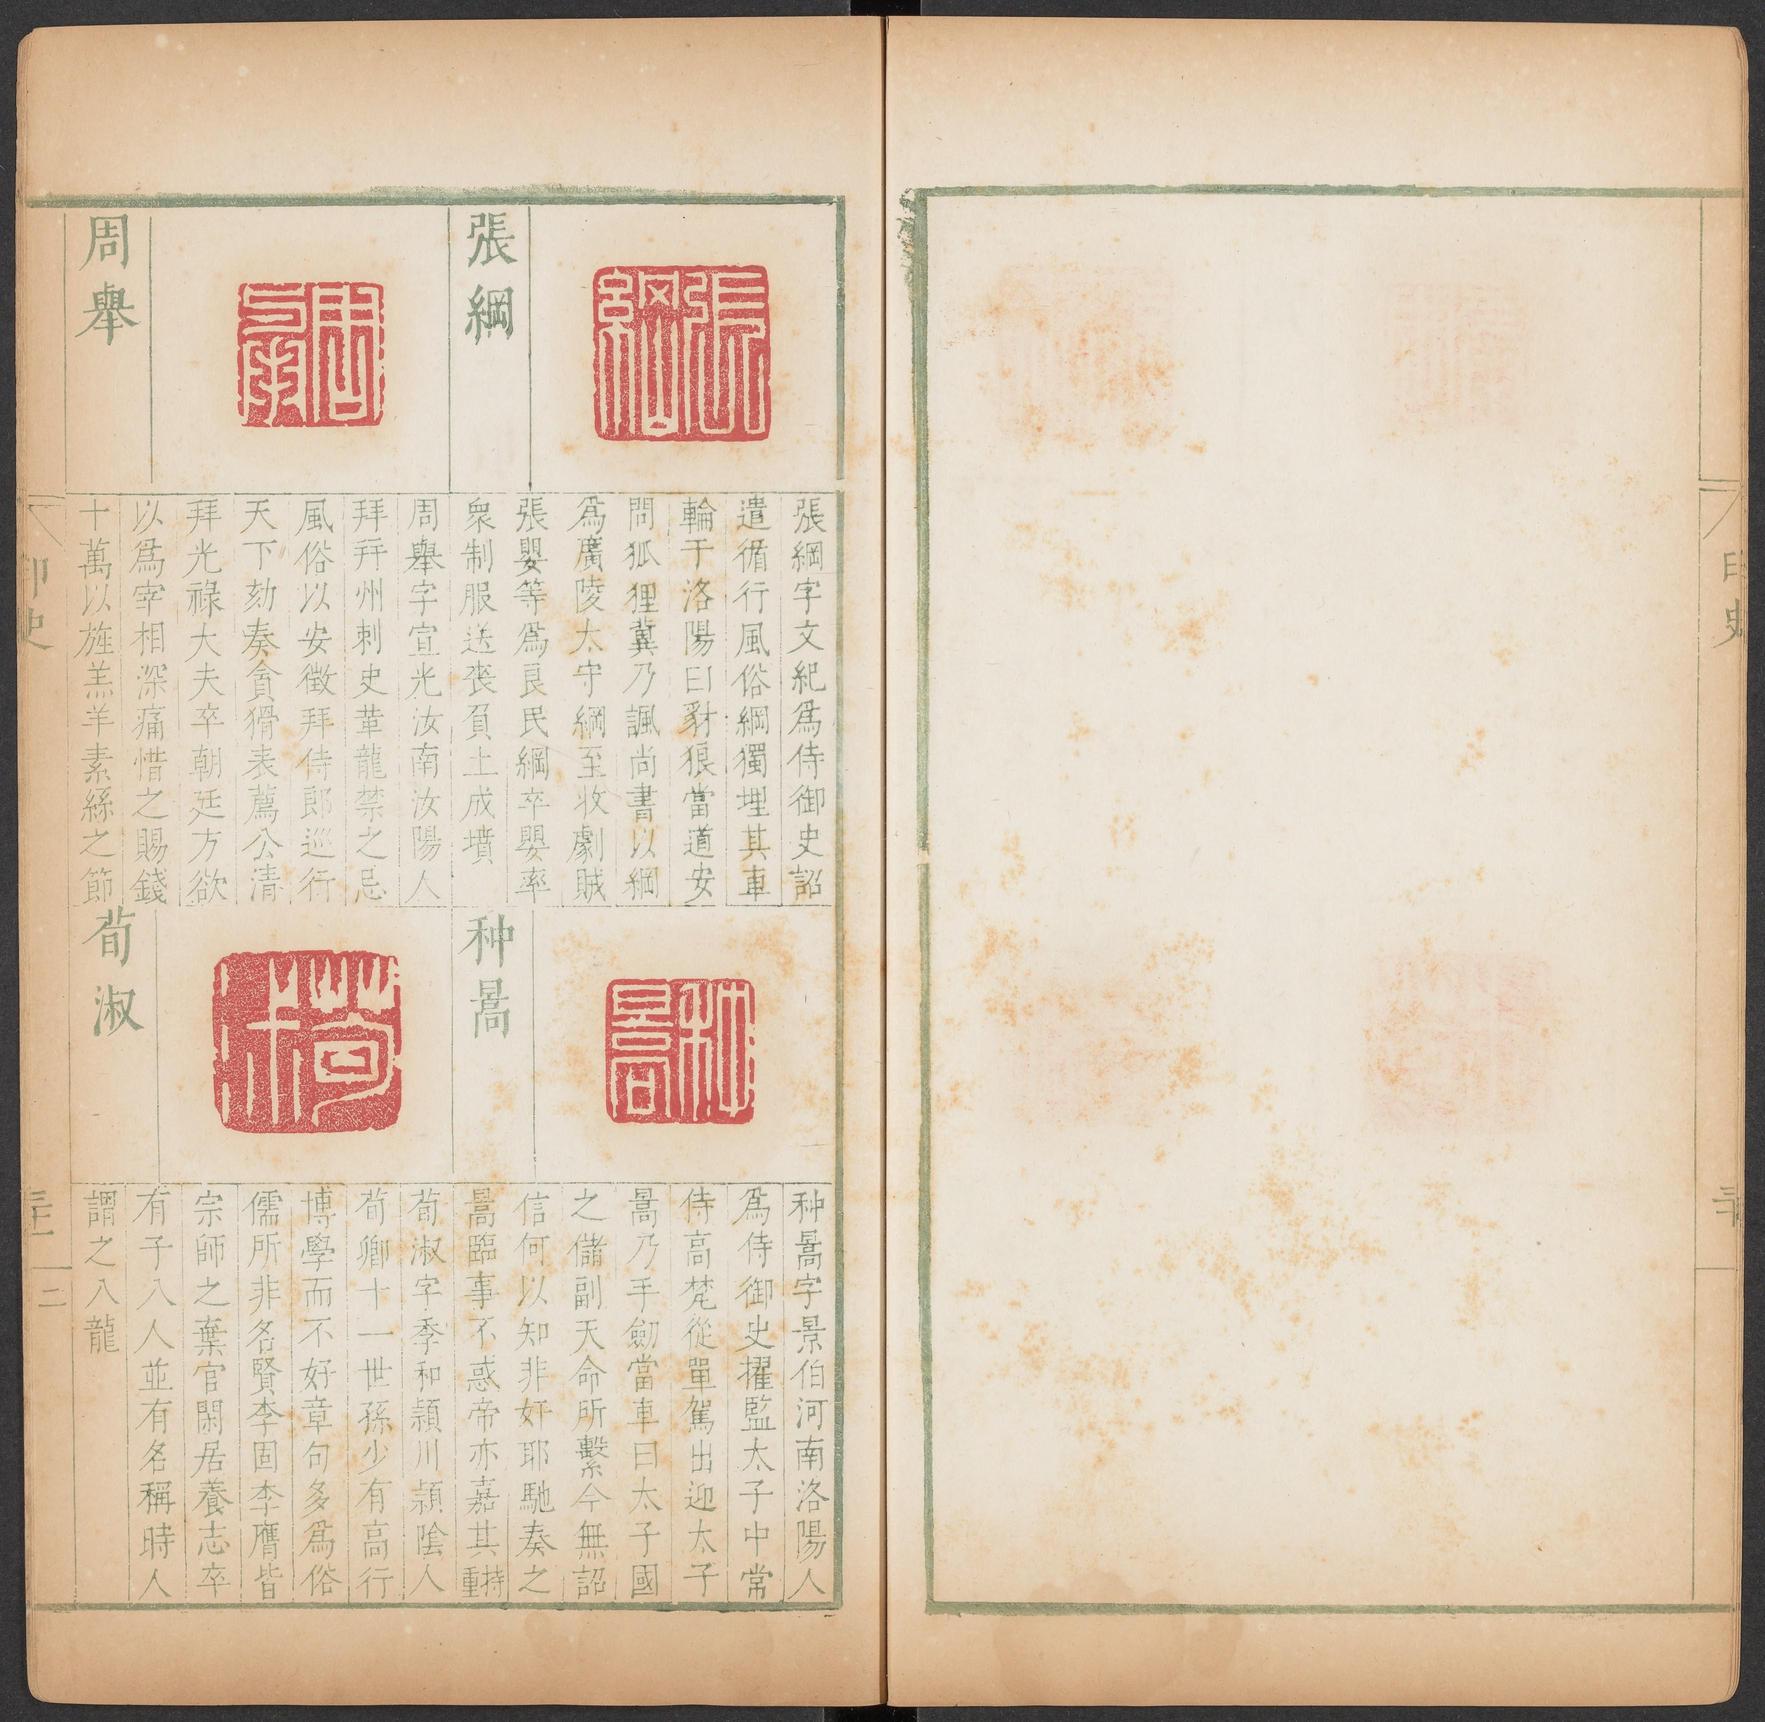 張綱
張綱字文紀爲侍御史詔
遣循行風俗綱獨埋其車
輪于洛陽曰豺狼當道安
問狐狸冀乃諷尚書以綱
爲廣陵太守綱至收劇賊
張嬰等爲良民綱卒嬰率
衆制服送喪負土成墳
周舉
周舉字宣光汝南汝陽人
拜幷州刺史革龍禁之忌
風俗以安徵拜侍郎巡行
天下劾奏貪猾表薦公清
拜光祿大夫卒朝廷方欲
以爲宰相深痛惜之賜錢
十萬以旌羔羊素絲之節
种暠
种暠字景伯河南洛陽人
爲侍御史擢監太子中常
侍高梵從單駕出迎太子
暠乃手劒當車曰太子國
之儲副天命所繫今無詔
信何以知非奸耶馳奏之
暠臨事不惑帝亦嘉其持重
荀淑
荀淑字季和潁川潁陰人
荀卿十一世孫少有高行
博學而不好章句多爲俗
儒所非名賢李固李膺皆
宗師之棄官閑居養志卒
有子八人並有名稱時人
謂之八龍
印史